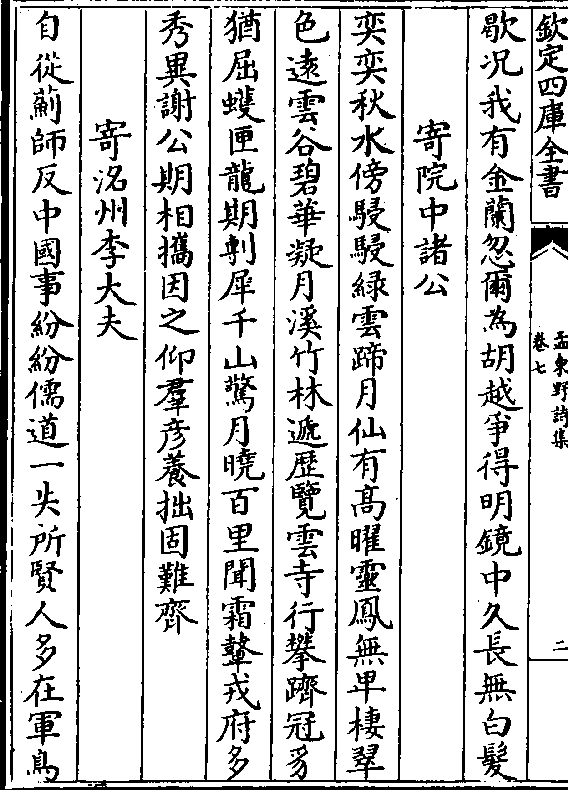 欽定四庫全書
孟東野詩集
卷七
二
歇況我有金蘭忽爾為胡越爭得明鏡中久長無白髮
寄院中諸公
奕奕秋水傍駸駸綠雲蹄月仙有高曜靈鳳無卑棲翠
色逺雲谷碧華凝月溪竹林遞歴覽雲寺行攀躋冠豸
猶屈蠖匣龍期剸犀千山驚月曉百里聞霜鼙戎府多
秀異謝公期相攜因之仰羣彦養拙固難齊
寄洺州李大夫
自從薊師反中國事紛紛儒道一失所賢人多在軍鳥